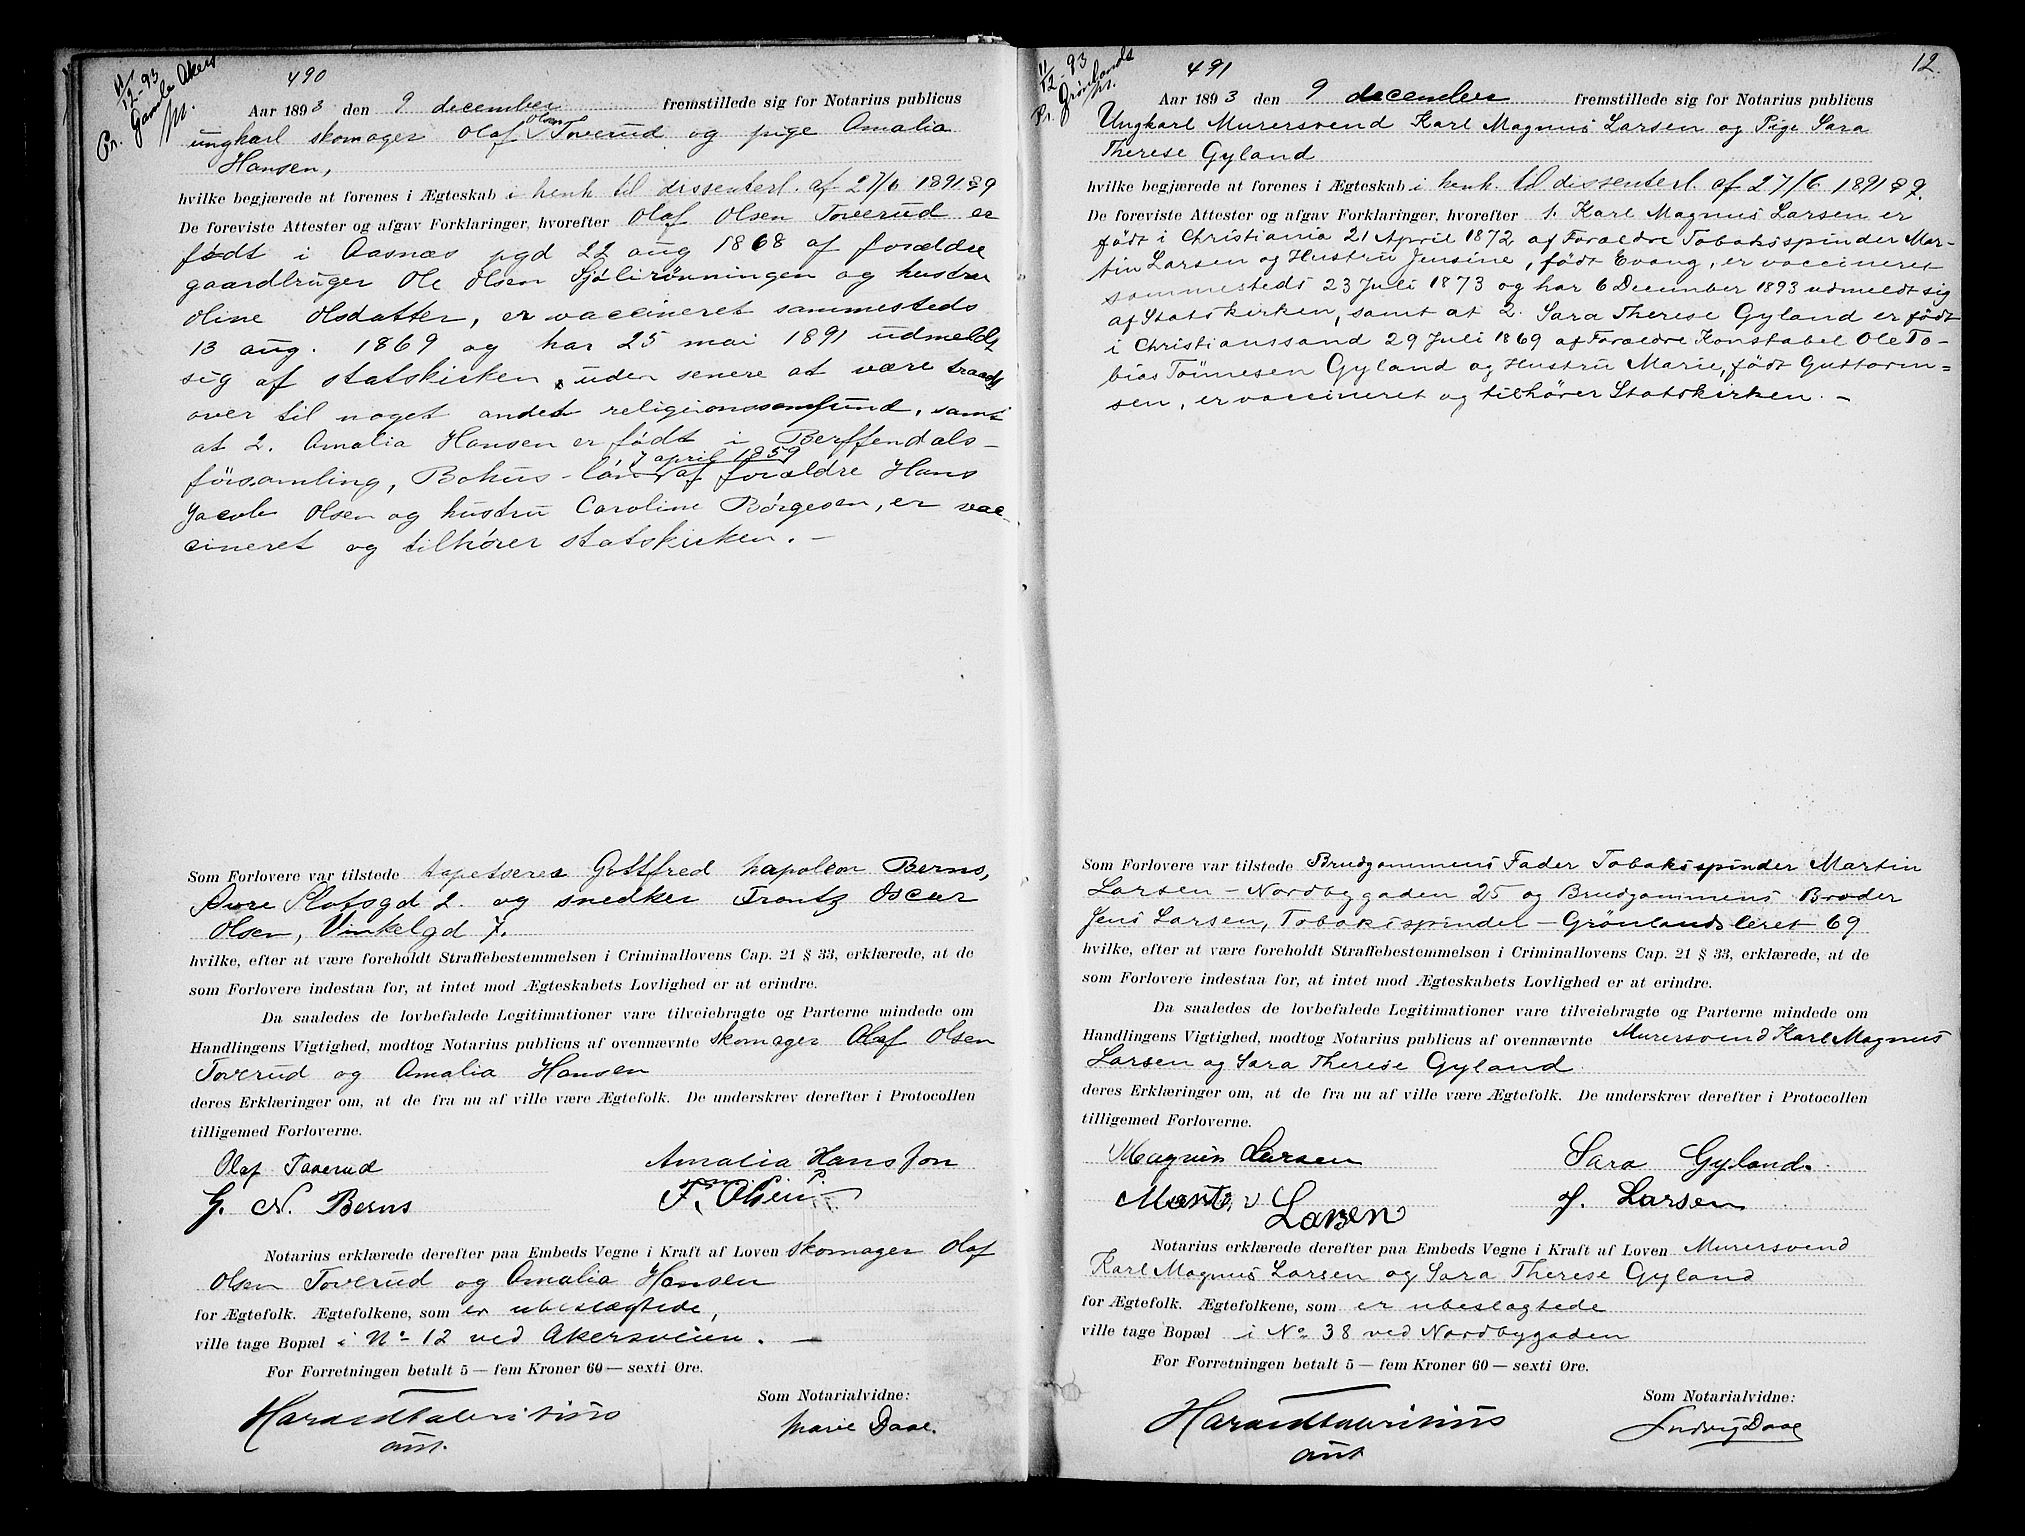 11/12-93
Pr. Gamle Akers
490
Aar 1893 den 9 december fremstillede sig for Notarius publicus
Olsen
ungkarl skomager Olaf Toverud og pige Amalia
Hansen,
hvilke begjærede at forenes i Ægteskab i henh til dissenterl. af 27/6 1891 § 9
De foreviste Attester og afgav Forklaringer, hvorefter Olaf Olsen Toverud er
født i Aasnæs pgd 22 aug 1868 af forældre
gaardbruger Ole Olsen Sjølirønningen og hustru
Oline Olsdatter, er vaccineret sammesteds
13 aug. 1869 og har 25 mai 1891 udmeldt
sig af statskirken, uden senere at være traadt
over til noget andet religionssamfund, samt
at 2. Amalia Hansen er født i Berffendals-
7 april 1859
församling, Bohus-län af forældre Hans
Jacob Olsen og hustru Caroline Börgesen, er vac-
cineret og tilhører statskirken. –
Som Forlovere var tilstede tapetserer Gottfred Napoleon Berns,
Øvre Slotsgd 2. og snedker Frantz Oscar
Olsen, Vinkelgd 7.
hvilke, efter at være foreholdt Straffebestemmelsen i Criminallovens Cap. 21 § 33, erklærede, at de
som Forlovere indestaa for, at intet mod Ægteskabets Lovlighed er at erindre.
Da saaledes de lovbefalede Legitimationer vare tilveiebragte og Parterne mindede om
Handlingens Vigtighed, modtog Notarius publicus af ovennævnte skomager Olaf Olsen
Toverud og Amalia Hansen
deres Erklæringer om, at de fra nu af ville være Ægtefolk. De underskrev derefter i Protocollen
tilligemed Forloverne.
Olaf Taaerud Amalia Hansson
G. N. Berns F. Olsen
Notarius erklærede derefter paa Embeds Vegne i Kraft af Loven skomager Olaf
Olsen Toverud og Amalia Hansen
for Ægtefolk. Ægtefolkene, som er ubeslægtede,
ville tage Bopæl i No 12 ved Akersveien. –
For Forretningen betalt 5 — fem Kroner 60 — sexti Øre.
Som Notarialvidne:
Marie Daae.
11/12-93
Pr. Grønlands
491
12.
Aar 1893 den 9 december fremstillede sig for Notarius publicus
Ungkarl Murersvend Karl Magnus Larsen og Pige Sara
Therese Gyland
hvilke begjærede at forenes i Ægteskab i henh. til dissenterl. af 27/6 1891 § 9.
De foreviste Attester og afgav Forklaringer, hvorefter 1. Karl Magnus Larsen er
født i Christiania 21 April 1872 af Forældre Tobakspinder Mar-
tin Larsen og Hustru Jensine, født Evang, er vaccineret
sammesteds 23 Juli 1873 og har 6 December 1893 udmeldt sig
af Statskirken, samt at 2. Sara Therese Gyland er født
i Christianssand 29 Juli 1869 af Forældre Konstabel Ole To-
bias Tönnesen Gyland og Hustru Marie, født Guttorm=
sen, er vaccineret og tilhører Statskirken. –
Som Forlovere var tilstede Brudgommens Fader Tobakspinder Martin
Larsen – Nordbygaden 25 og Brudgommens Broder
Jens Larsen, Tobakspinder – Grønlandsleret 69
hvilke, efter at være foreholdt Straffebestemmelsen i Criminallovens Cap. 21 § 33, erklærede, at de
som Forlovere indestaa for, at intet mod Ægteskabets Lovlighed er at erindre.
Da saaledes de lovbefalede Legitimationer vare tilveiebragte og Parterne mindede om
Handlingens Vigtighed, modtog Notarius publicus af ovennævnte Murersvend Karl Magnus
Larsen og Sara Therese Gyland
deres Erklæringer om, at de fra nu af ville være Ægtefolk. De underskrev derefter i Protocollen
tilligemed Forloverne.
Magnus Larsen Sara Gyland.
Martin Larsen J. Larsen
Notarius erklærede derefter paa Embeds Vegne i Kraft af Loven Murersvend
Karl Magnus Larsen og Sara Therese Gyland
for Ægtefolk. Ægtefolkene, som er ubeslagtede
ville tage Bopæl i No 38 ved Nordbygaden
For Forretningen betalt 5 — fem Kroner 60 — sexti Øre.
Som Notarialvidne:
Ludvig Daae